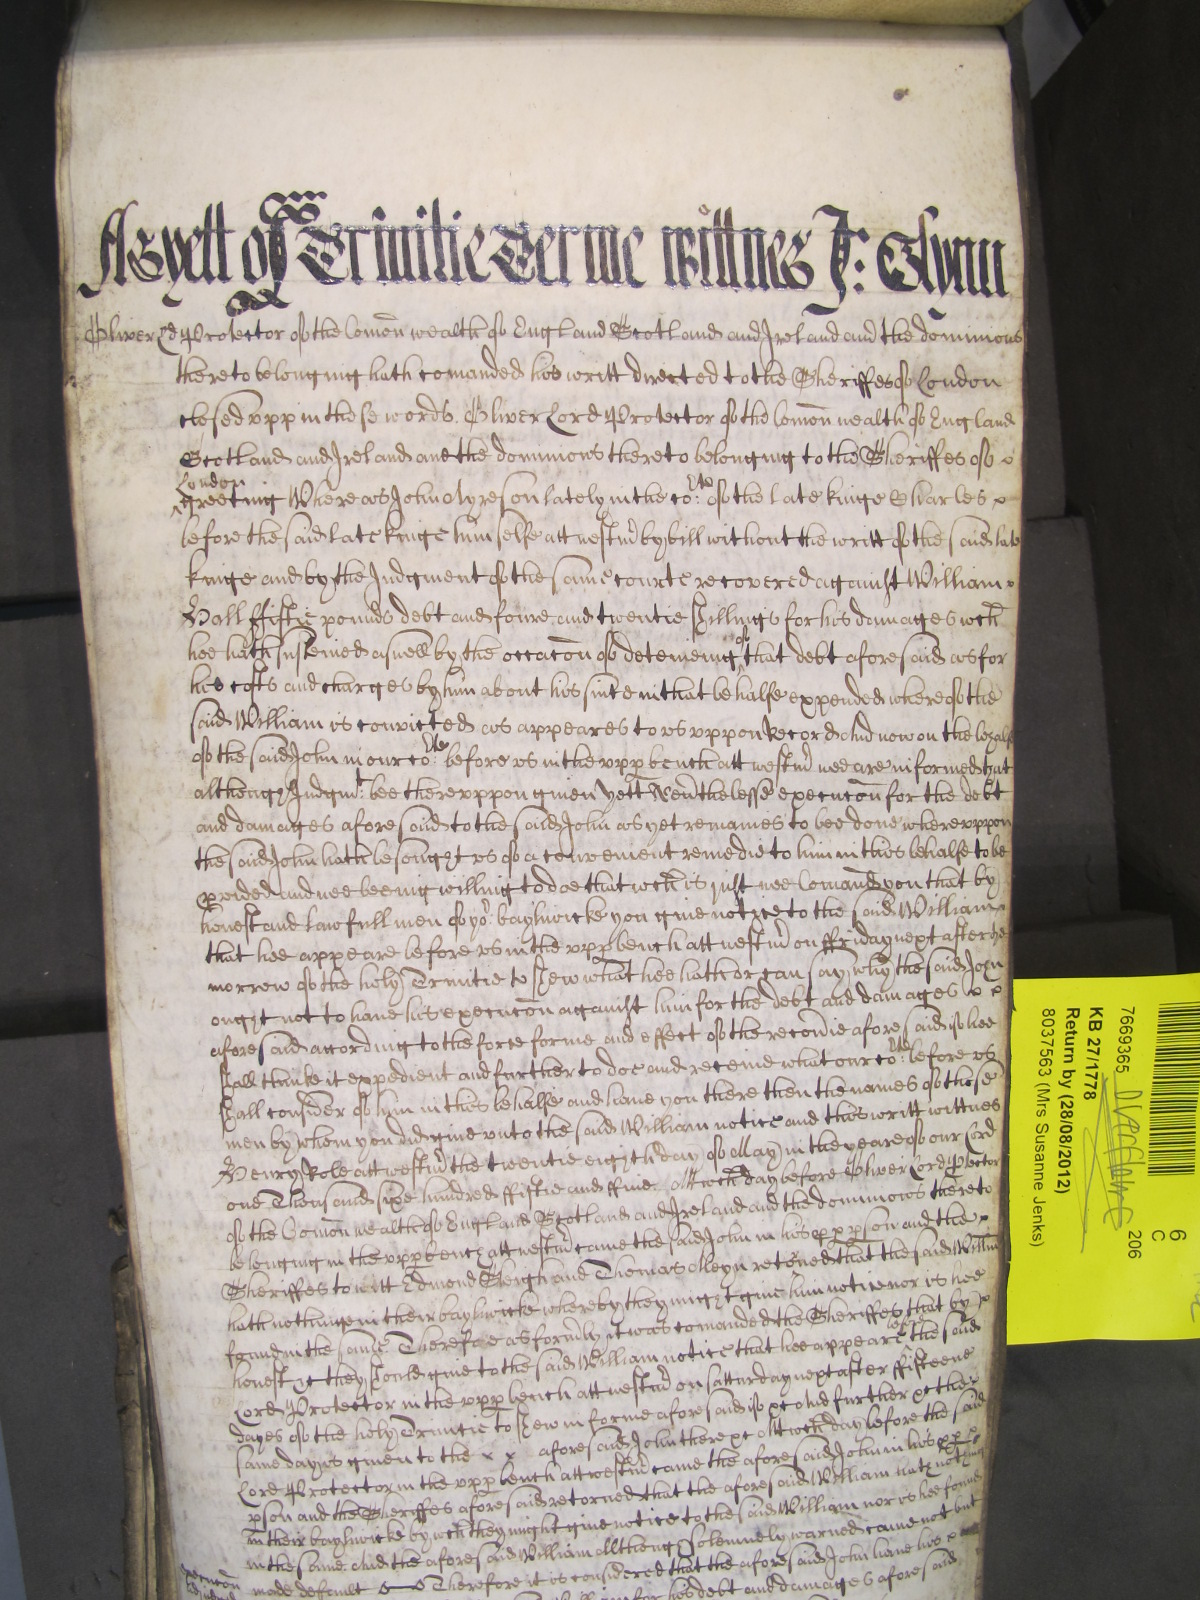 As yett of Trinitie Terme wittnes Jo: Glynn
Oliver Ld Protector of the Comon wealth of England Scotland and Ireland and the dominions
thereto belonging hath comanded his writt directed to the Sheriffes of London
closed upp in these words. Oliver Lord Protector of the Comon wealth of England
Scotland and Ireland and the dominions thereto belonging to the Sheriffes of
London
greeting Whereas John lately in the Cort: of the late kinge Charles
before the said late kinge himselfe att westmr by bill without the writt of the said late
kinge and by the Judgment of the same courte recovered against William
Hall ffiftie pounds debt and foure and twentie shillings for his damages wch
hee hath susteined aswell by the occacon of deteineing of that debt aforesaid as for
his costs and charges by him about his suite in that behalfe expended whereof the
said William is convicted as appeares to us uppon Record And now on the behalfe
of the said John in our Cort: before us in the upp bench att westmr wee are informed that
although Judgmt: bee thereuppon given yett Neverthelesse execucon for the debt
and damages aforesaid to the said John as yet remaines to bee done whereuppon
the said John hath besought us of a convenient remedie to him in this behalfe to be
pvided And wee beeing willing to doe that wch is just wee Comand you that by
honest and lawfull men of yor: baylywicke you give notice to the said William
that hee appeare before us in the upp bench att westmr on ffriday next after the
morrow of the holy Trinitie to shew what hee hath or can say why the said John
ought not to have his execucon against him for the debt and damages
aforesaid according to the force forme and effect of the recovrie aforesaid if hee
shall thinke it expedient and further to doe and receive what our Cort: before us
shall consider of him in this behalfe and have you there then the names of those
men by whom you did give unto the said William notice and this writt wittnes
Henry Role att westmr the twentie eighth day of May in the yeare of our Lord
one Thousand sixe hundred ffiftie and ffive. Att wch day before Oliver Lord Ptector
of the Comon wealth of England Scotland and Ireland and the dominions thereto
belonging in the upp bench att westmr came the said John in his pp pson and the
Sheriffes to witt Edmond Sleigh and Thomas Aleyn retorned that the said Willm
hath nothinge in their baylywicke whereby they might give him notice nor is hee
found in the same Therefore as formly it was comanded the Sheriffes that by
honest &c they should give to the said William notice that hee appeare before the said
Lord Protector in the upp bench att westmr on satturday next after ffifteene
dayes of the holy Trinitie to shew in forme aforesaid if &c And further &c the
same day is given to the x x aforesaid John there &c Att wch day before the said
Lord Protector in the upp bench att westmr came the aforesaid John in his pp
pson and the Sheriffes aforesaid retorned that the aforesaid William hath nothing
in their baylywicke by wch they might give notice to the said William nor is hee found
in the same. And the aforesaid William although solemnely warned came not but
made default Therefore it is considered that the aforesaid John have his
execucon
for his debt and damages aforesaid
7669365
206
6
C
KB 27/1778
Return by (28/08/2012)
8037563 (Mrs Susanne Jenks)